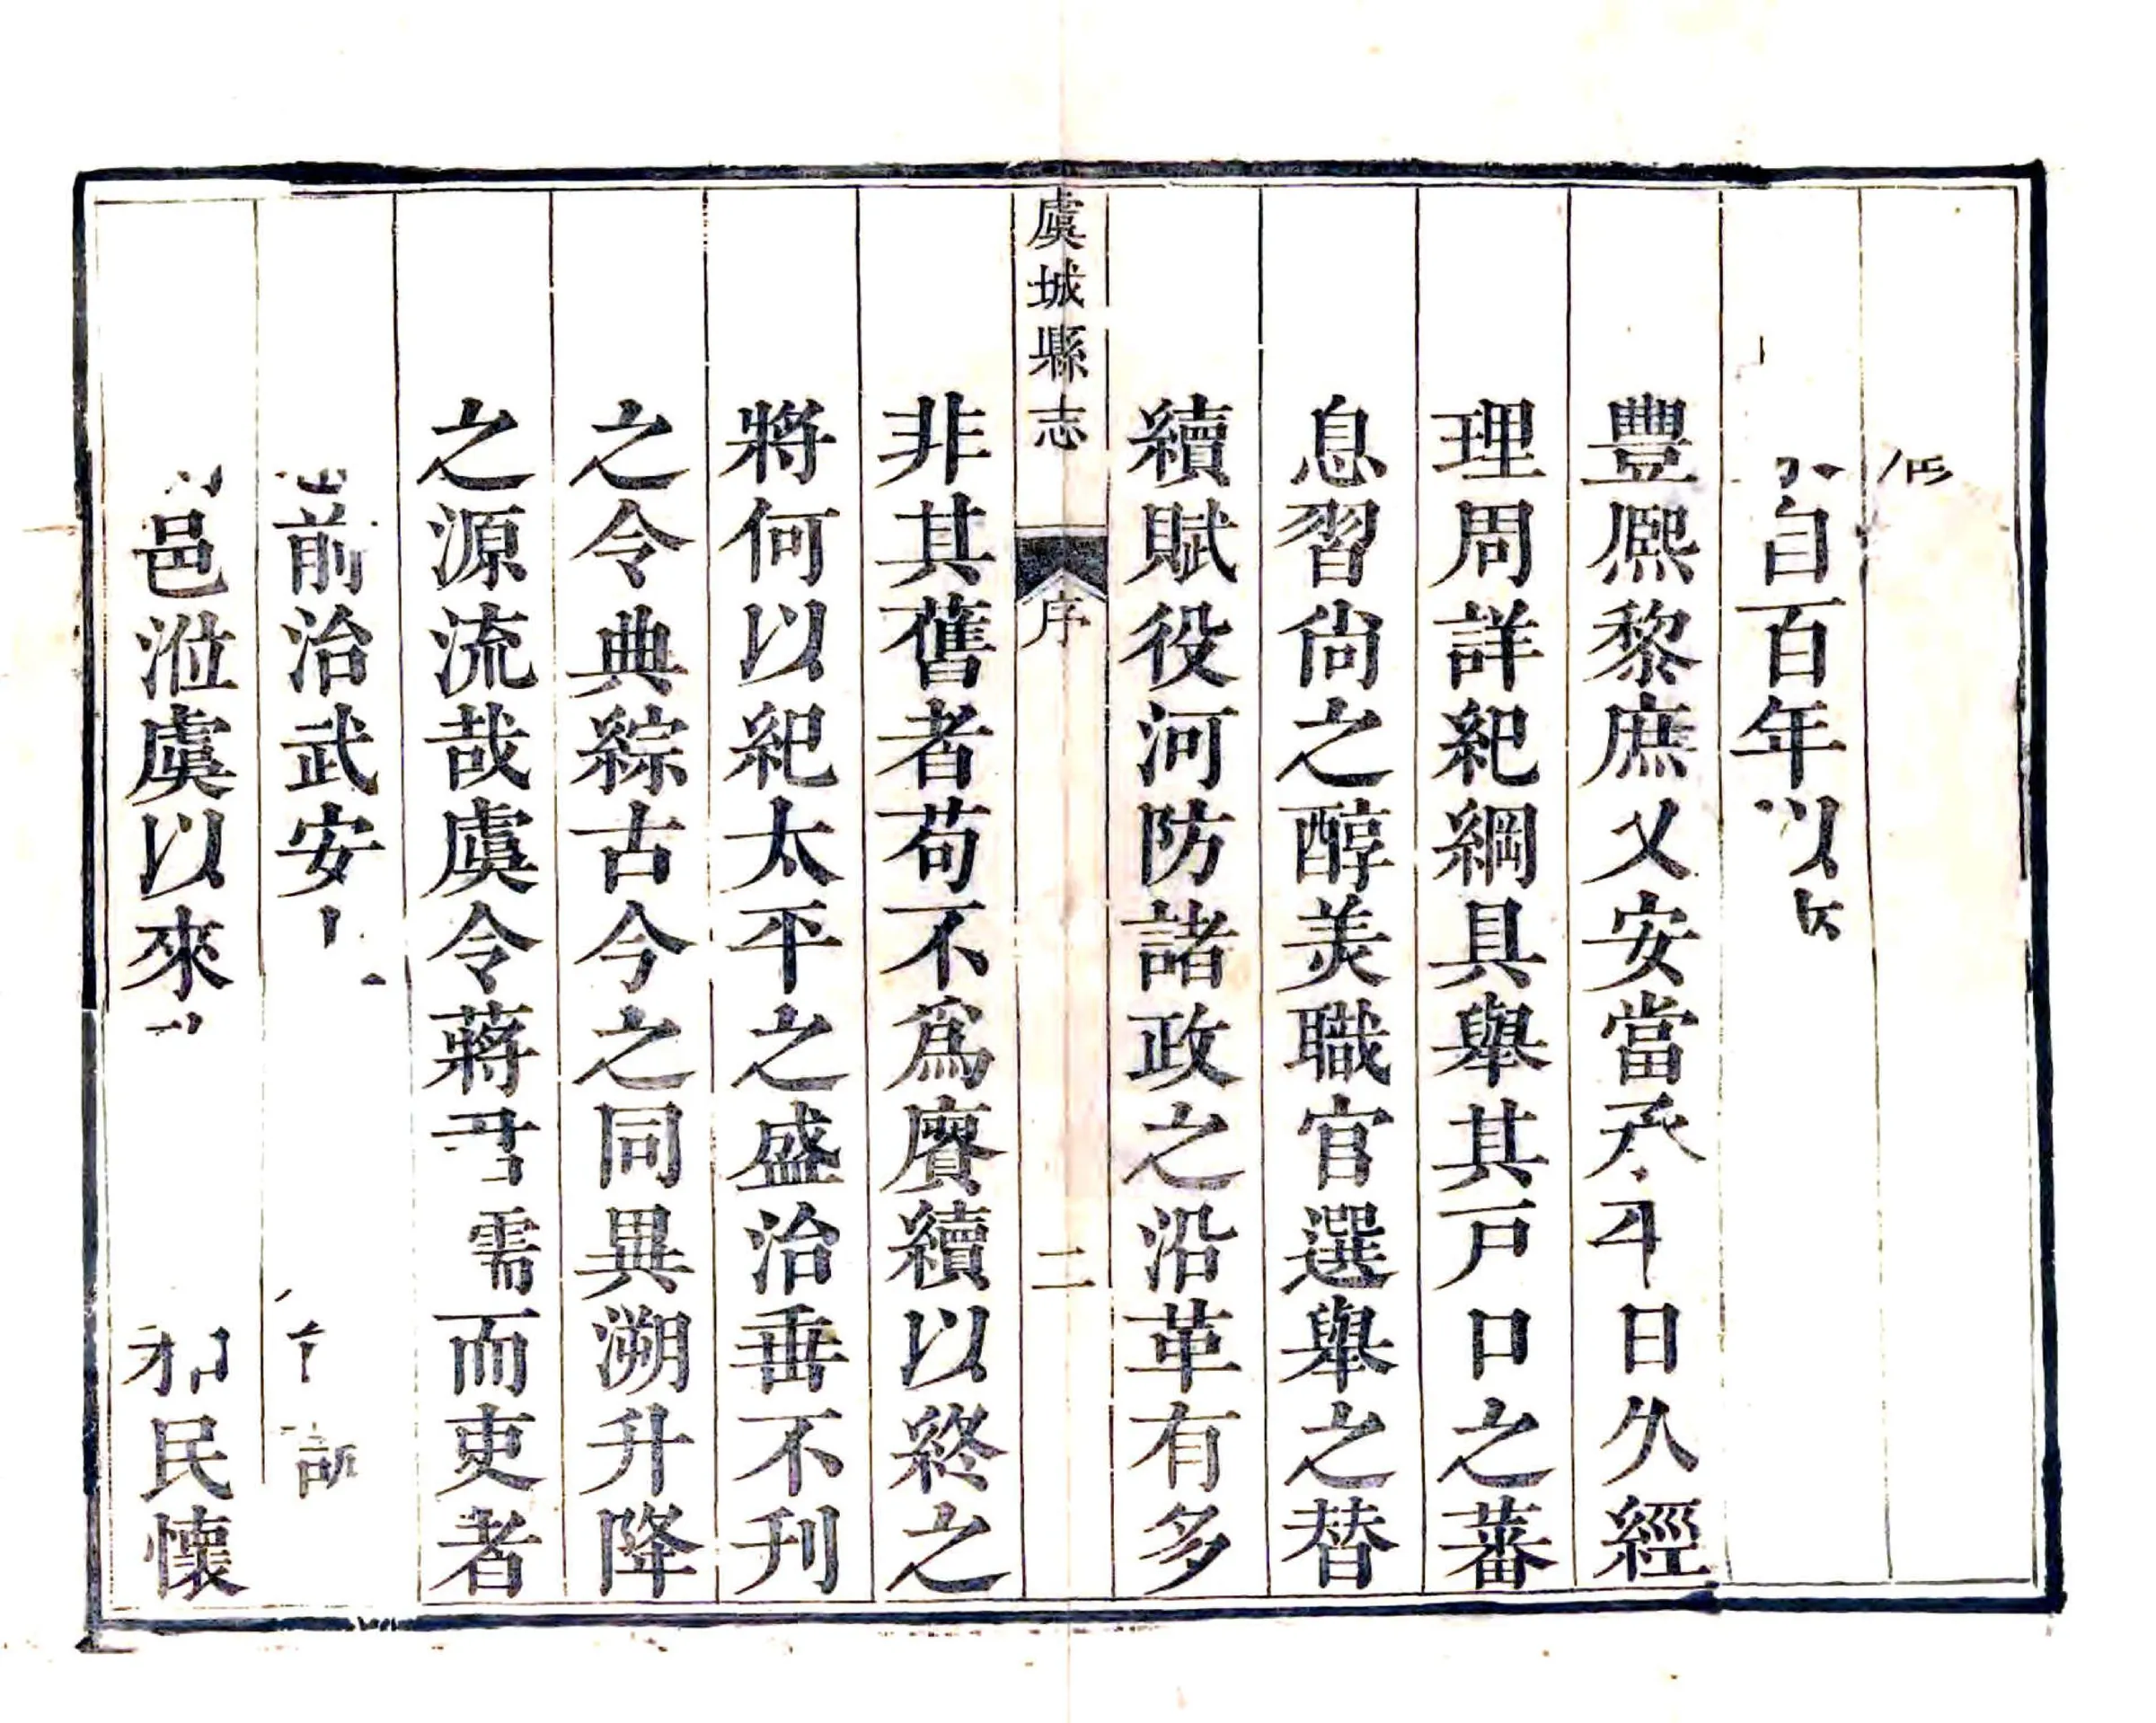 自百年以
豐熈黎庶乂安當承平日久經
理周詳紀綱具舉其戸口之蕃
息習尙之醇美職官選舉之替
續賦役河防諸政之沿革有多
虞城縣志
序
二
非其舊者苟不爲賡續以終之
將何以紀太平之盛治垂不刊
之令典綜古今之同異溯升降
之源流哉虞令蔣需而吏者
前治武安
邑涖虞以來和民懷